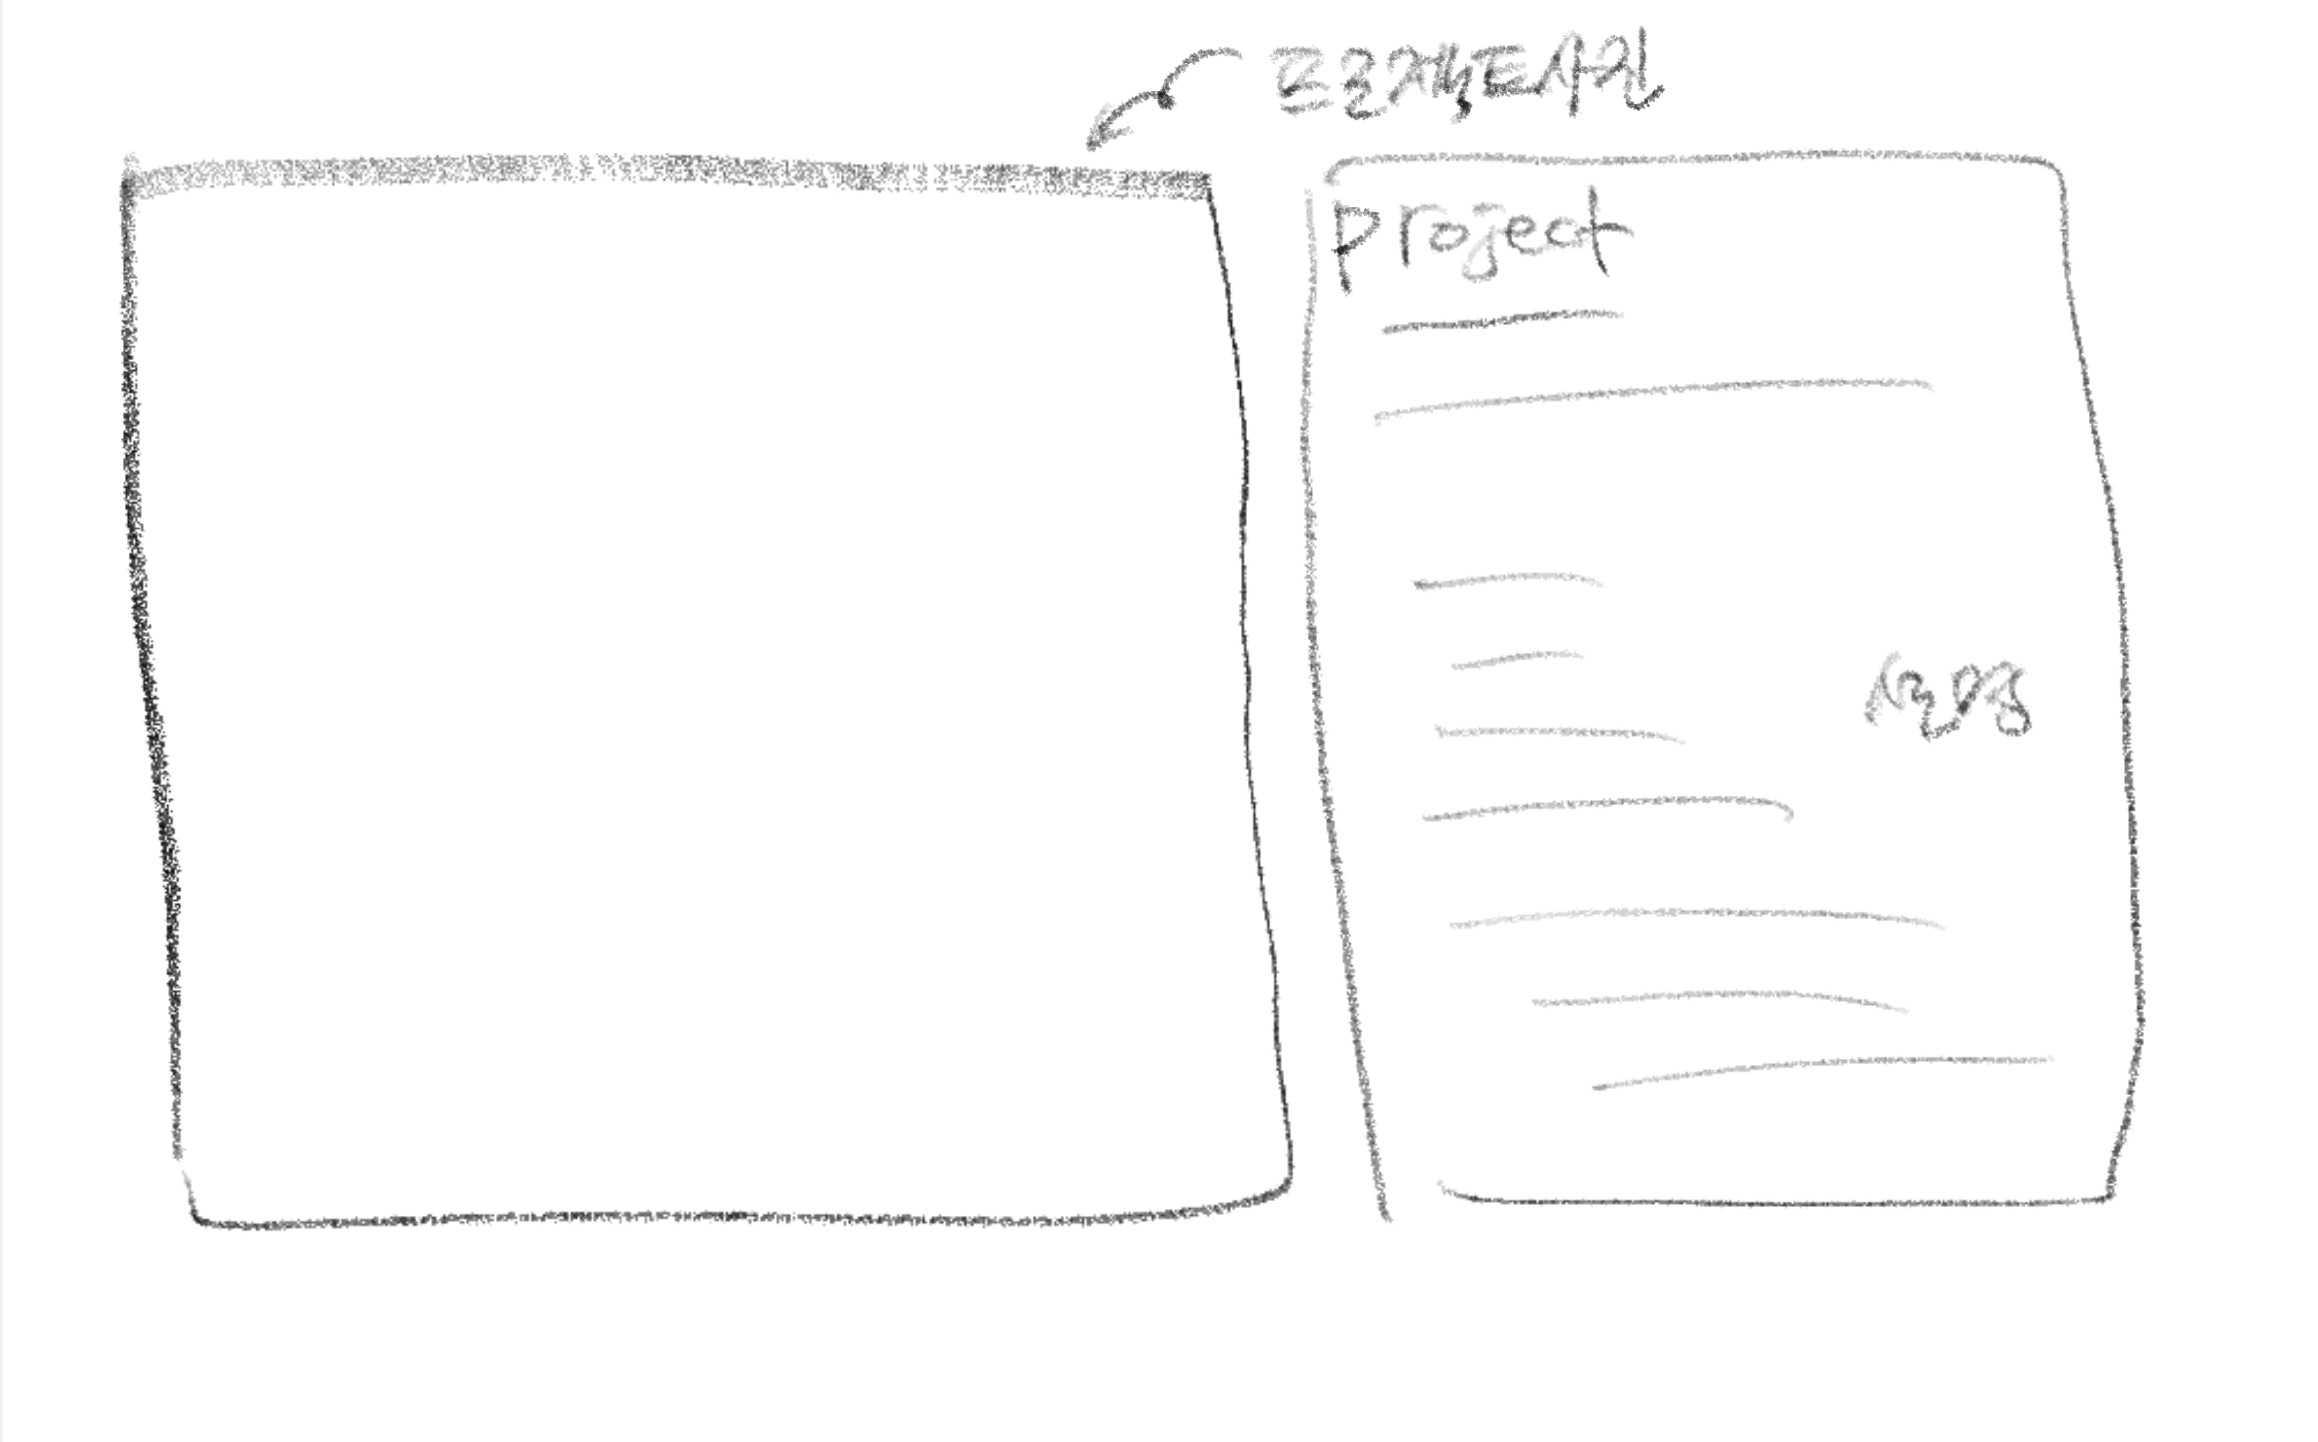 프로젝트사진
project
설명